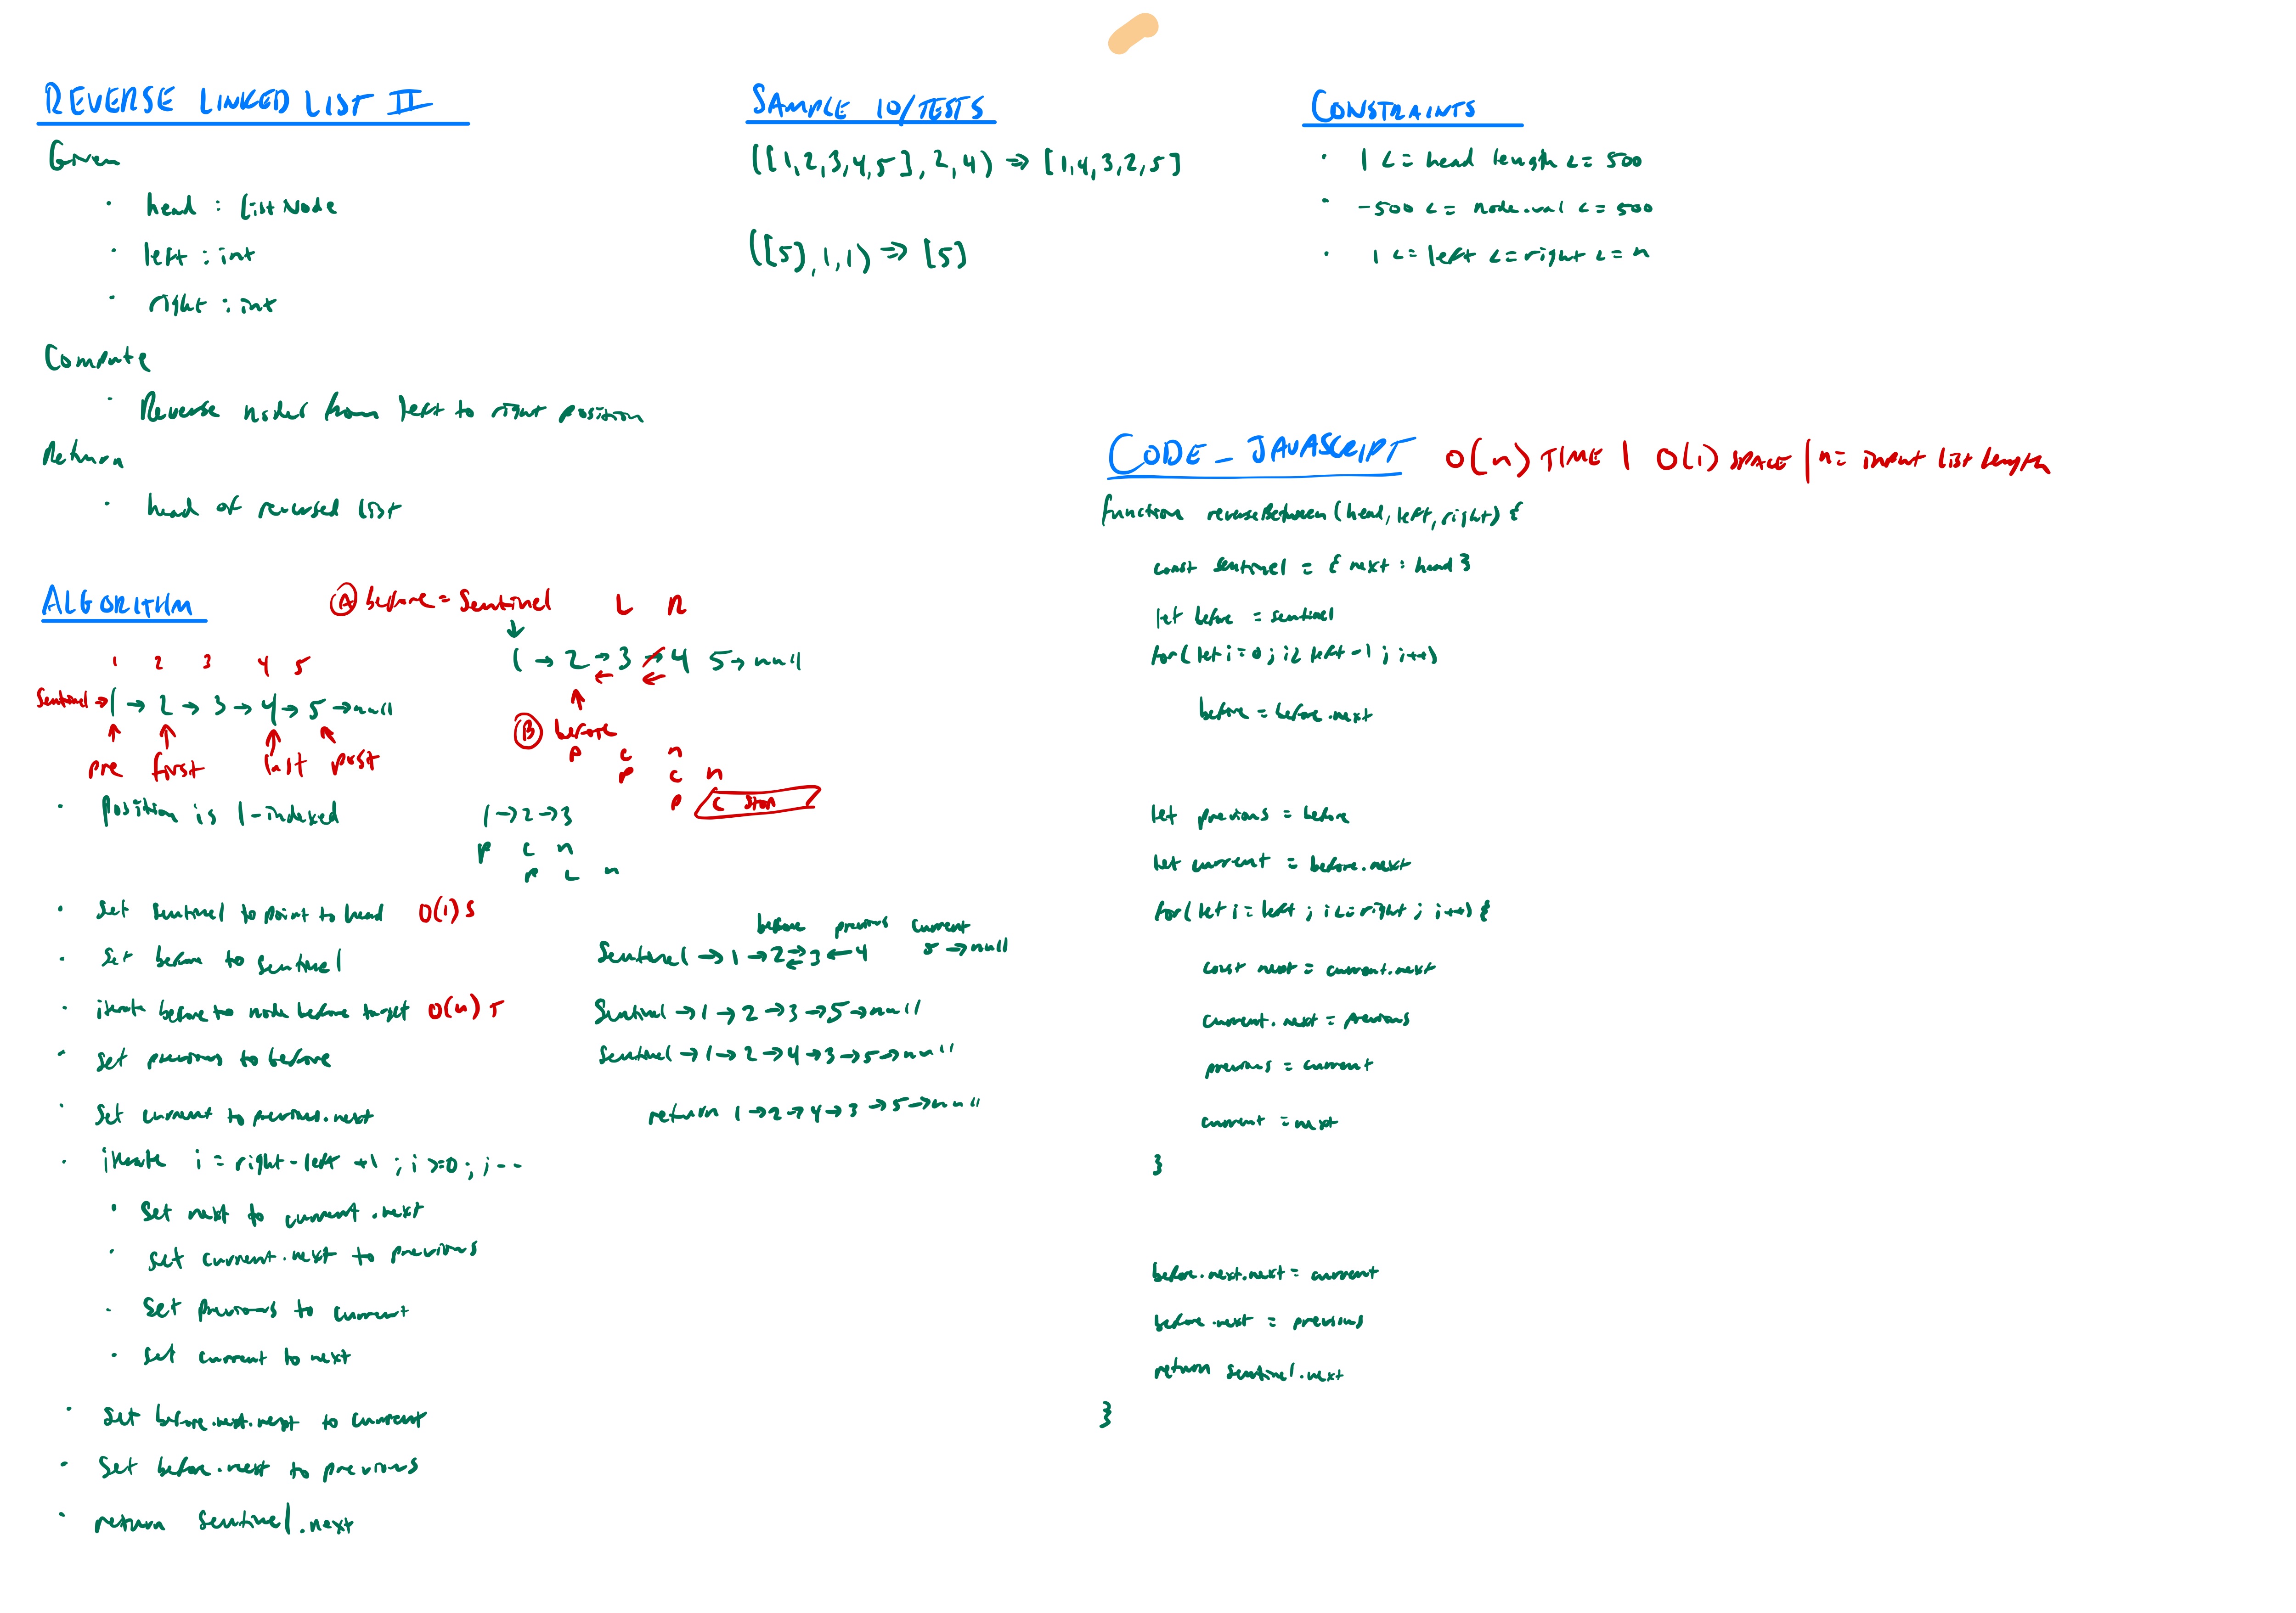 REVERSE LINKED LIST II
Given
· head : ListNode
· left : int
· right : int
Compute
· Reverse nodes from left to right position
Return
· head of reversed list
SAMPLE IO/TESTS
([1,2,3,4,5], 2,4) => [1,4,3,2,5]
([5],1,1) => [5]
CONSTRAINTS
· 1 <= head length <= 500
· -500 <= node.val <= 500
· 1 <= left <= right <= n
ALGORITHM
1 2 3 4 5
Sentinel → 1 → 2 → 3 → 4 → 5 → null
pre first last post
A before = Sentinel L R
1 → 2 → 3 → 4 5 → null
B before
p c n
p c n
p c stop
· Position is 1-indexed
1 → 2 → 3
p c n
p c n
· Set sentinel to point to head O(1) S
· Set before to sentinel
· iterate before to node before target O(n) T
· set previous to before
· Set current to previous.next
· iterate i = right - left +1 ; i >=0 ; i--
· Set next to current.next
· set current.next to previous
· Set previous to current
· set current to next
· Set before.next.next to current
· Set before.next to previous
· return Sentinel.next
before previous current
Sentinel → 1 → 2 → 3 ← 4 5 → null
Sentinel → 1 → 2 → 3 → 5 → null
Sentinel → 1 → 2 → 4 → 3 → 5 → null
return 1 → 2 → 4 → 3 → 5 → null
CODE - JAVASCRIPT O(n) TIME | O(1) SPACE | n = input list length
function reverseBetween (head, left, right) {
const sentinel = { next : head }
let before = sentinel
for( let i=0 ; i< left -1 ; i++)
before = before.next
let previous = before
let current = before.next
for( let i = left ; i <= right ; i++) {
const next = current.next
current.next = previous
previous = current
current = next
}
before.next.next = current
before.next = previous
return sentinel.next
}